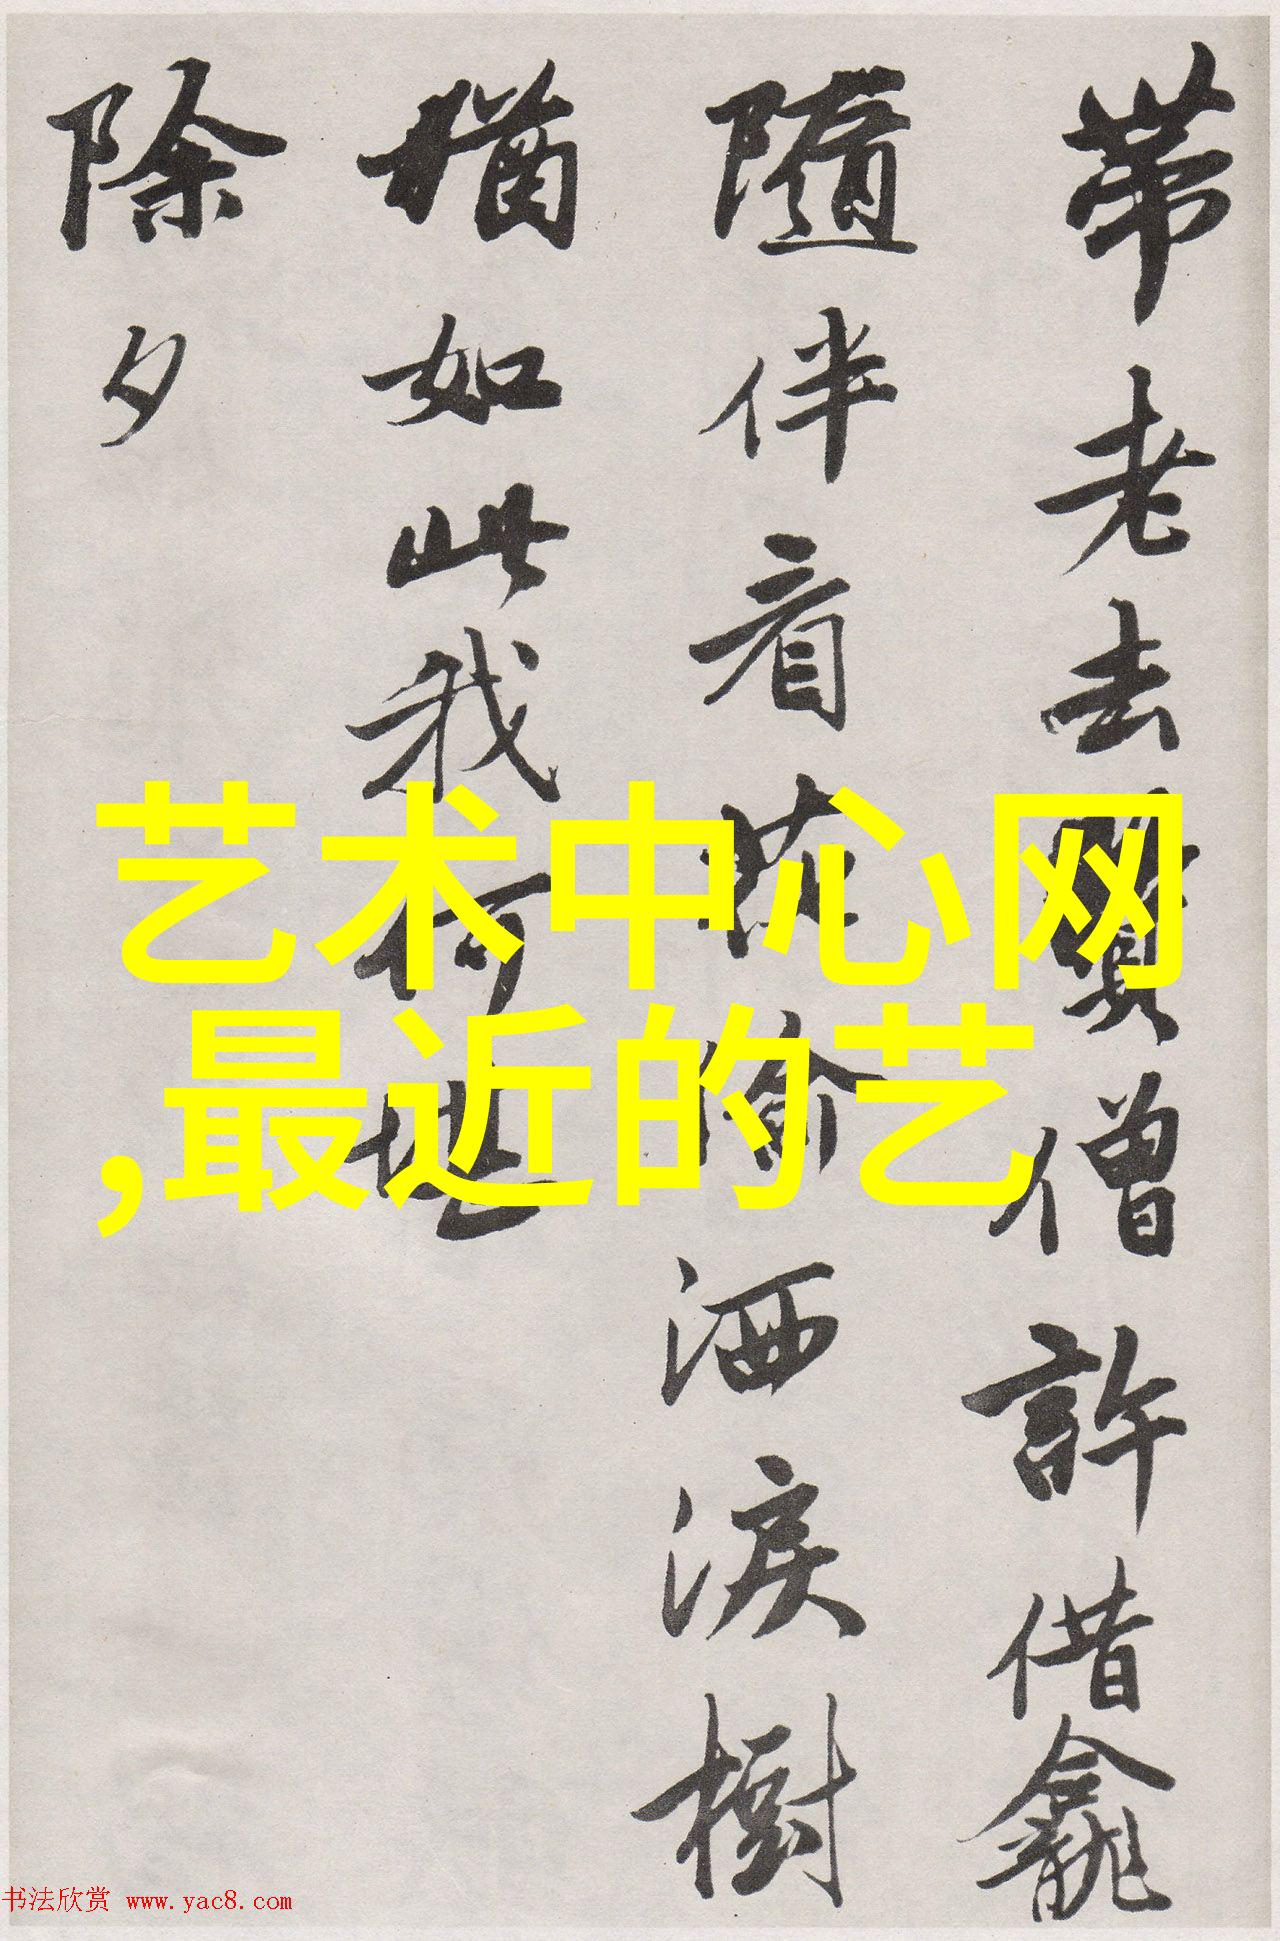 帶老去賢僧許借龕
隨伴看花偷洒淚樹
猶如此我何堪
除夕
艺术中心网
,最近的艺
书法欣赏 www.yac8.com